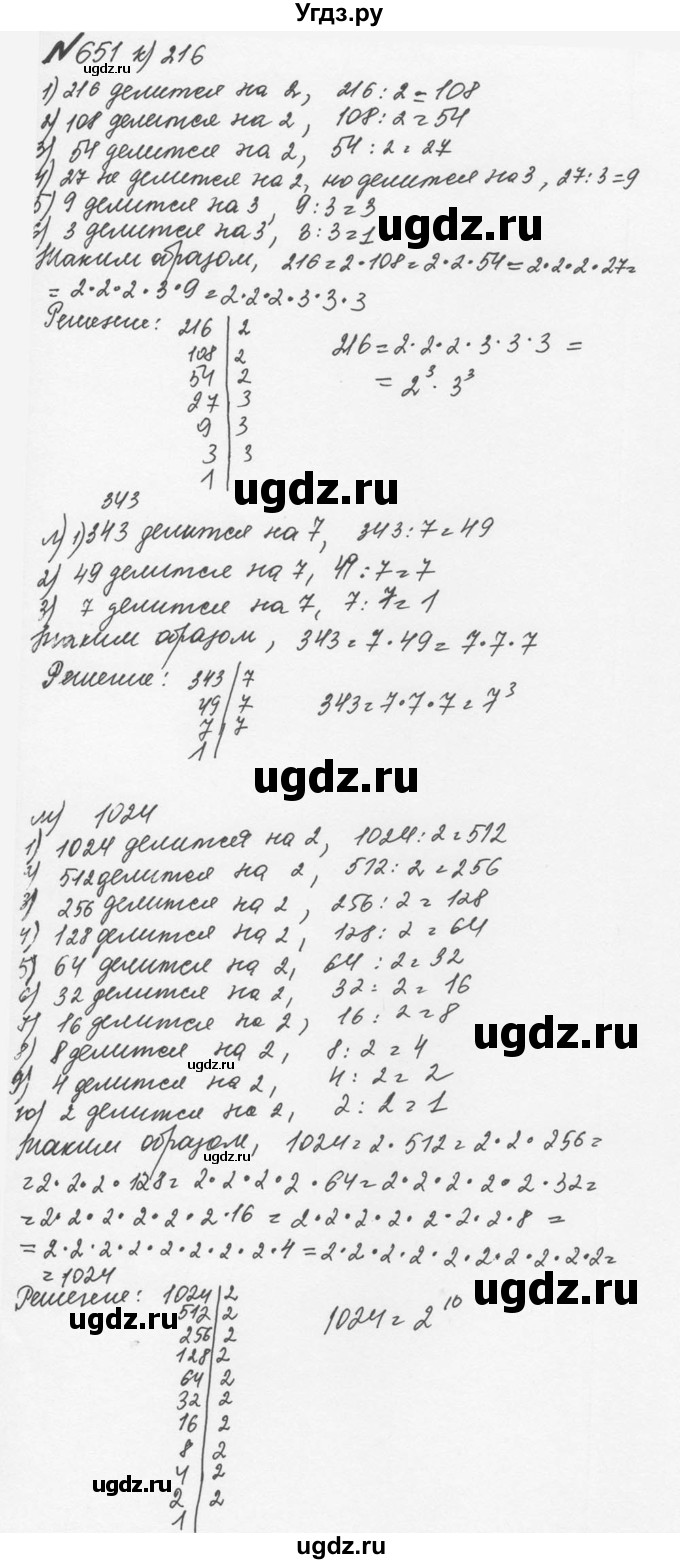 Угдз.ру
№651 к) 216
1) 216 делится на 2, 216 : 2 = 108
2) 108 делится на 2, 108 : 2 = 54
3) 54 делится на 2, 54 : 2 = 27
4) 27 не делится на 2, но делится на 3, 27 : 3 = 9
5) 9 делится на 3, 9 : 3 = 3
3 делится на 3, 3 : 3 = 1
Таким образом, 216 = 2·108 = 2·2·54 = 2·2·2·27 =
= 2·2·2·3·9 = 2·2·2·3·3·3
Решение: 216 | 2 216 = 2·2·2·3·3·3 =
108 | 2
54 | 2 = 2³·3³
27 | 3
9 | 3
3 | 3
1
343
л) 1) 343 делится на 7, 343 : 7 = 49
2) 49 делится на 7, 49 : 7 = 7
3) 7 делится на 7, 7 : 7 = 1
Таким образом, 343 = 7·49 = 7·7·7
Решение: 343 | 7
49 | 7 343 = 7·7·7 = 7³
7 | 7
1
м) 1024
1) 1024 делится на 2, 1024 : 2 = 512
2) 512 делится на 2, 512 : 2 = 256
3) 256 делится на 2, 256 : 2 = 128
4) 128 делится на 2, 128 : 2 = 64
5) 64 делится на 2, 64 : 2 = 32
6) 32 делится на 2, 32 : 2 = 16
7) 16 делится на 2, 16 : 2 = 8
8) 8 делится на 2, 8 : 2 = 4
9) 4 делится на 2, 4 : 2 = 2
10) 2 делится на 2, 2 : 2 = 1
Таким образом, 1024 = 2·512 = 2·2·256 =
= 2·2·2·128 = 2·2·2·2·64 = 2·2·2·2·2·32 =
= 2·2·2·2·2·2·16 = 2·2·2·2·2·2·2·8 =
= 2·2·2·2·2·2·2·2·4 = 2·2·2·2·2·2·2·2·2·2 =
= 1024
Решение: 1024 | 2
512 | 2 1024 = 2¹⁰
256 | 2
128 | 2
64 | 2
32 | 2
16 | 2
8 | 2
4 | 2
2 | 2
1
ugdz.ru